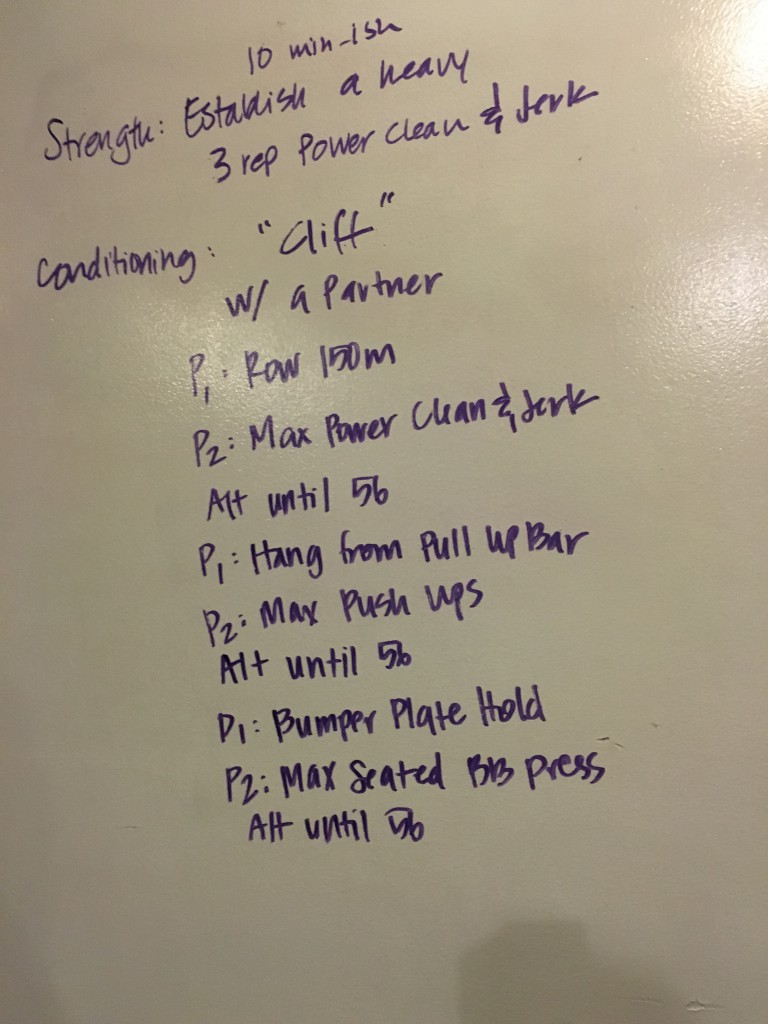 10 min-ish
Strength: Establish a heavy
3 rep Power Clean & Jerk
Conditioning: "Cliff"
w/ a Partner
P1: Row 150m
P2: Max Power Clean & Jerk
Alt until 56
P1: Hang from Pull Up Bar
P2: Max Push Ups
Alt until 56
P1: Bumper Plate Hold
P2: Max Seated BB Press
Alt until 56